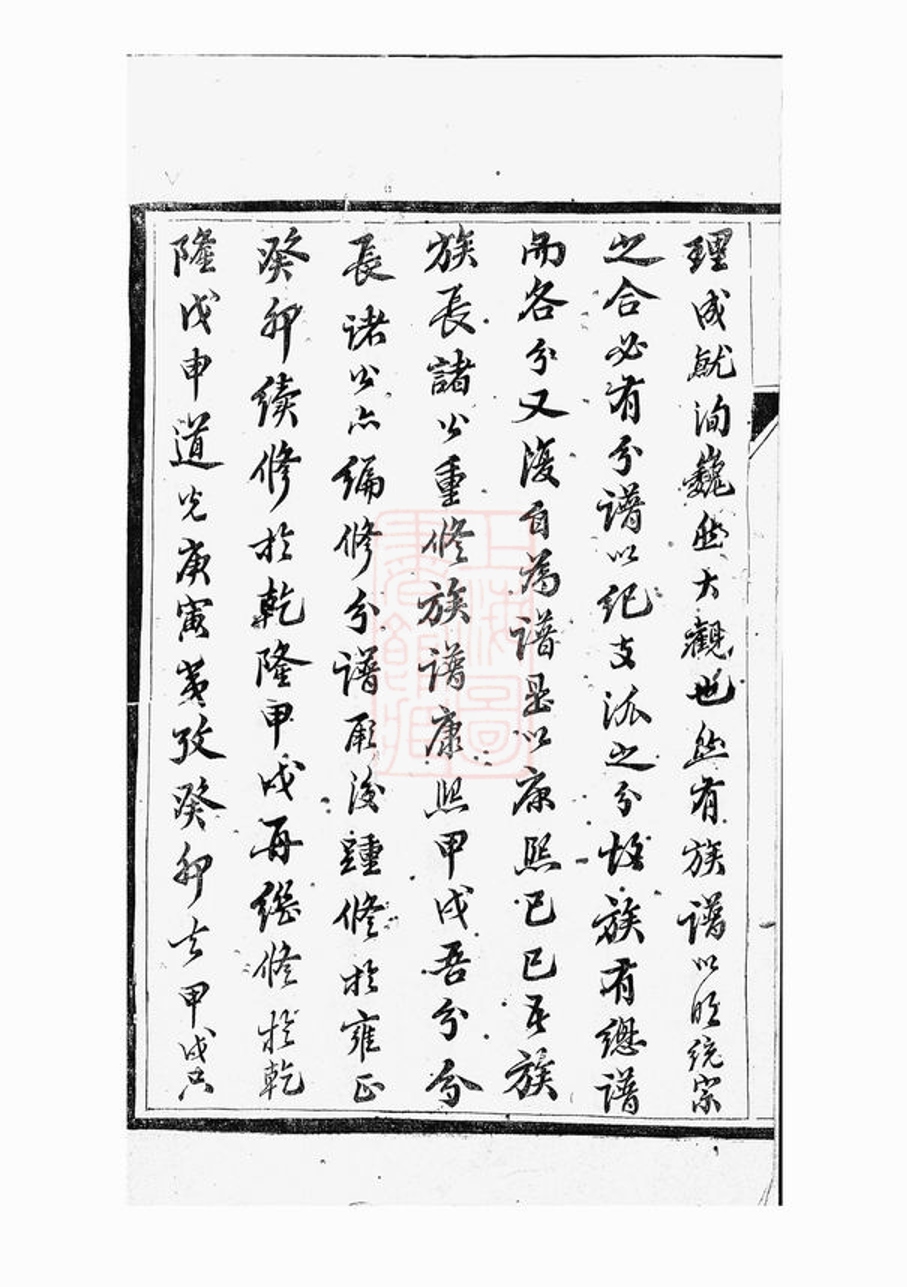 理成就洵巍然大觀也然有族譜以昭統宗
之合必有分譜以紀支派之分故族有總譜
而各分又復自為譜是以康熙己巳吾族
族長諸公重修族譜康熙甲戌吾分分
長諸公亦編修分譜厥後踵修於雍正
癸卯續修於乾隆甲戌再繼修於乾
隆戊申道光庚寅爰考癸卯去甲戌
上海圖書館藏